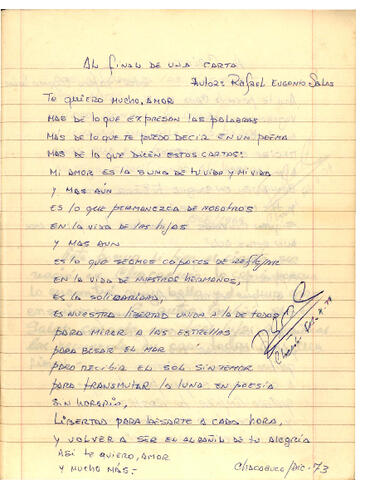 AL FINAL DE UNA CARTA
Autor: Rafael Eugenio Salas
Te quiero mucho, amor
Mas de lo que expresan las palabras
Mas de lo que te puedo decir en un poema
Mas de lo que dicen estas cartas.
Mi amor es la suma de tu vida y mi vida
y mas aún
es lo que permanezca de nosotros
en la vida de las hijas
y mas aún
es lo que seamos capaces de reflejar
en la vida de nuestros hermanos,
es la solidaridad,
es nuestra libertad unida a la de todos
para mirar a las estrellas
para besar el mar
para recibir el sol sin temor
para transmutar la luna en poesía
sin horario,
libertad para besarte a cada hora,
y volver a ser el albañil de tu alegría
Asi te quiero, amor
y mucho más.-
Chacabuco/Dic.-73